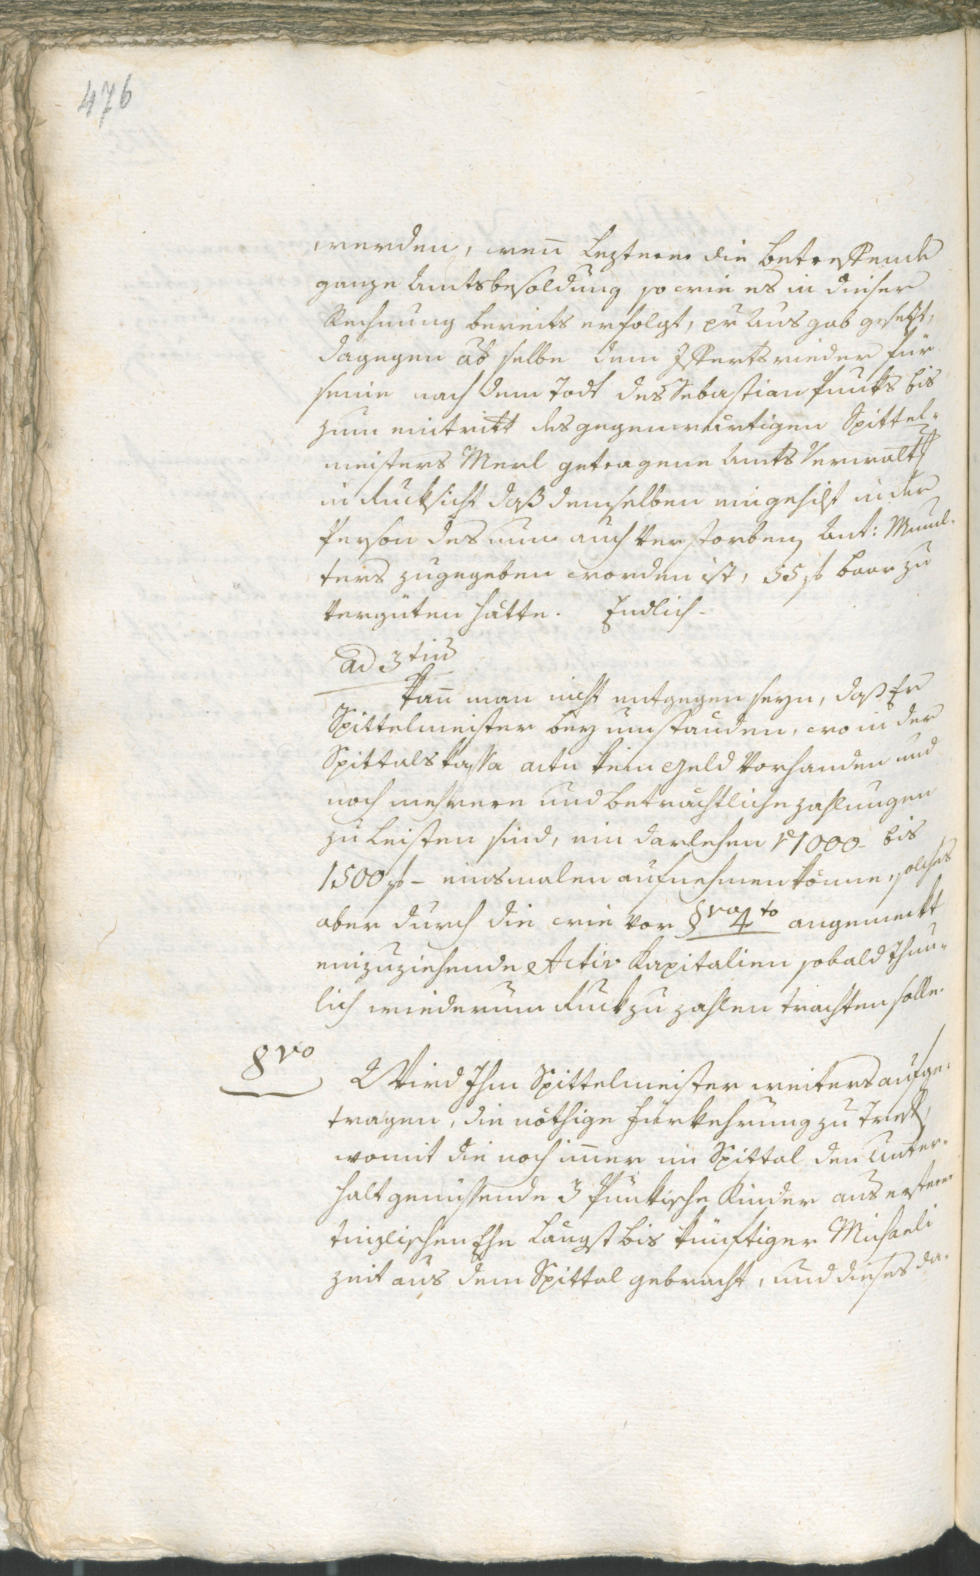 476
werden, wen̄ Lezterer die betreffende
ganze Amtsbesoldung so wie es in dieser
Rechnung bereits erfolgt, pr Ausgab gesetzt,
dagegen ab selbe dem wieder für
seine nach dem Todt des Sebastian Punkts bis
zum eintritt des gegenwärtigen Spittel-
meisters Merl getragene Amts Verwalt
in Rücksicht daß demselben ein gehilf in der
Person des nun auch verstorbenen Ant:
ters zugegeben worden ist, 55 f baar zu
vergüten hätte. Endlich
ad 3tiū
Kan̄ man nicht entgegen seyn, daß Er
Spittelmeister bey umständen, wo in der
Spittals Kassa actu kein Geld vorhanden und
noch mehrere und beträchtliche zahlungen
zu Leisten sind, ein darlehen pr 1000 bis
1500 f – einsmalen aufnehmen könne, solches
aber durch die wie vor §vo 4to angemerkt
einzuziehende Activ Kapitalien sobald thun-
lich wiederum Ruckzuzahlen trachten solle.
8vo
Wird Ihm Spittelmeister weiters aufge-
tragen, die nöthige Fürkehrung zu treffen,
womit die noch im̄er im Spittal den Unter-
halt genüssende 3 Punktische Kinder aus ersterer
Ehe Längst bis künftiger Michaeli
zeit aus dem Spittal gebracht, und dieses da-